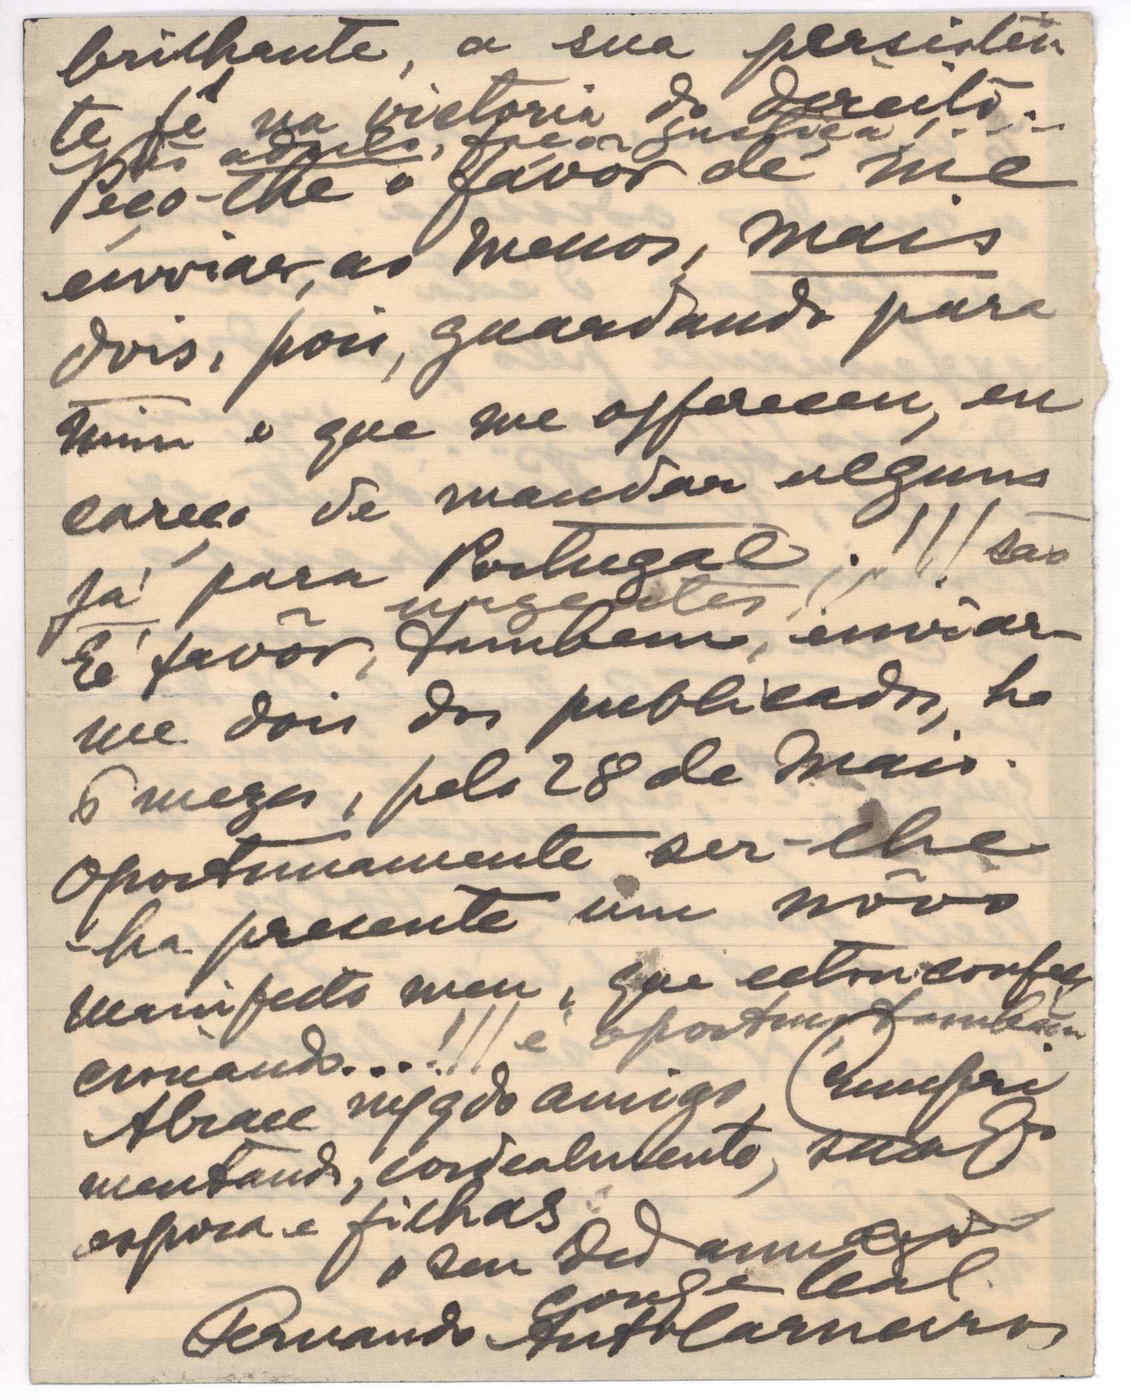 brilhante, a sua persisten
te fé na victoria do direito.
Peço-lhe o favôr de me
enviar, ao menos, mais
dois, pois, guardando para
mim o que me offereceu, en
careço de mandar alguns
já para Portugal.!!! são
urgentes!!!
É favôr, tambem, enviar-
me dois dos publicados, ha
6 mezes, pelo 28 de Maio.
Oportunamente ser-lhe
-ha presente um nôvo
manifesto meu, que estou confec
cionando...!!! é oportuno tambem
Abrace amigo, Cumpri
mentando, cordealmente, sua
esposa e filhas
o seu Ded
leal
Fernando Antº Carneiro